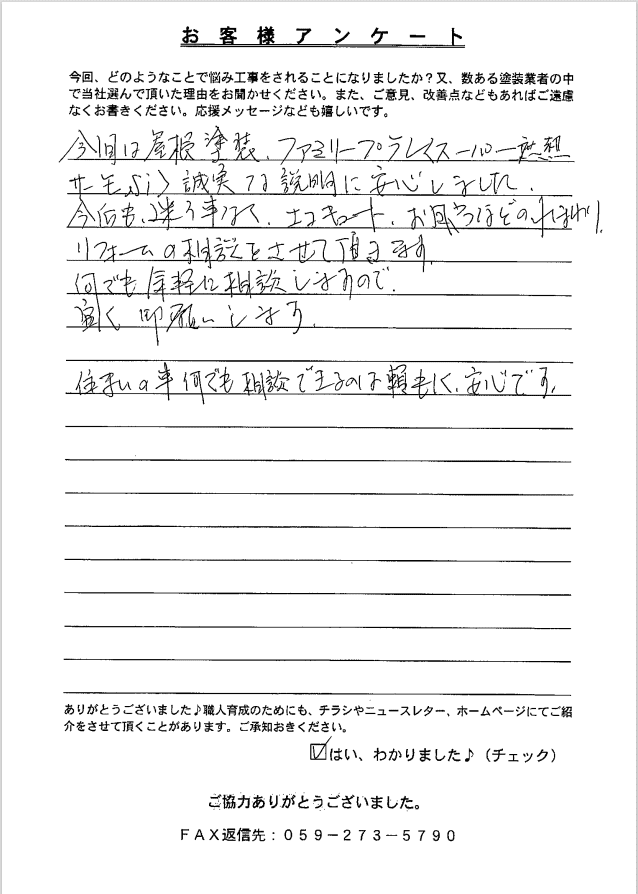 お客様アンケート
今回、どのようなことで悩み工事をされることになりましたか？又、数ある塗装業者の中
で当社選んで頂いた理由をお聞かせください。また、ご意見、改善点などもあればご遠慮
なくお書きください。応援メッセージなども嬉しいです。
今回は屋根塗装、ファミリープラ
誠実な説明に安心しました。
今后も、迷う事なく、エコキュート、お風呂などの水まわり、
リフォームの相談をさせて頂きます。
何でも気軽に相談しますので、
宜く御願いします。
住まいの事何でも相談できるのは頼もしく、安心です。
ありがとうございました♪職人育成のためにも、チラシやニュースレター、ホームページにてご紹
介をさせて頂くことがあります。ご承知おきください。
はい、わかりました♪（チェック）
ご協力ありがとうございました。
FAX返信先：059－273－5790